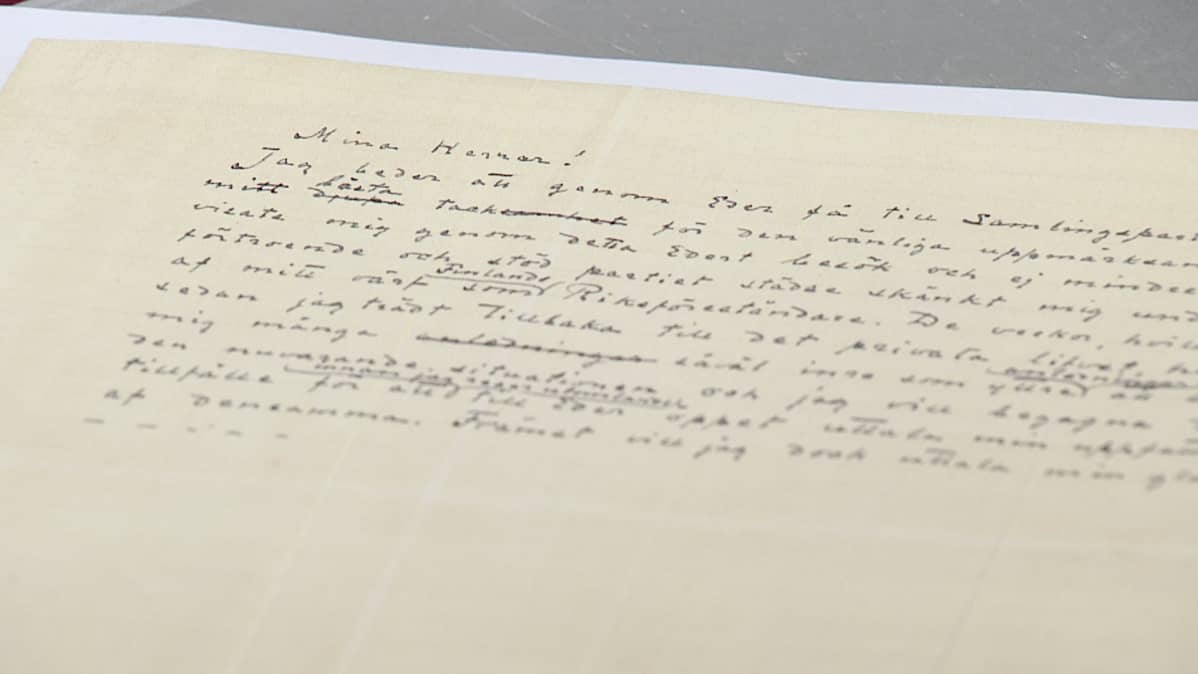 Mina Herrar!
Jag beder att genom Eder få till Samlingspart
mitt djupa bästa tacksamhet för den vänliga uppmärksam
visats mig genom detta Edert besök och ej mindre
förtroende och stöd partiet städse skänkt mig und
af mitt värf som Finlands Riksföreståndare. De veckor, hvil
sedan jag trädt tillbaka till det privata lifvet h
mig många anledningar såväl inre som yttre att
den nuvarande situationen och jag vill begagna
tillfälle för att till Eder öppet uttala min uppfat
af densamma. Främst vill jag dock uttala min gl